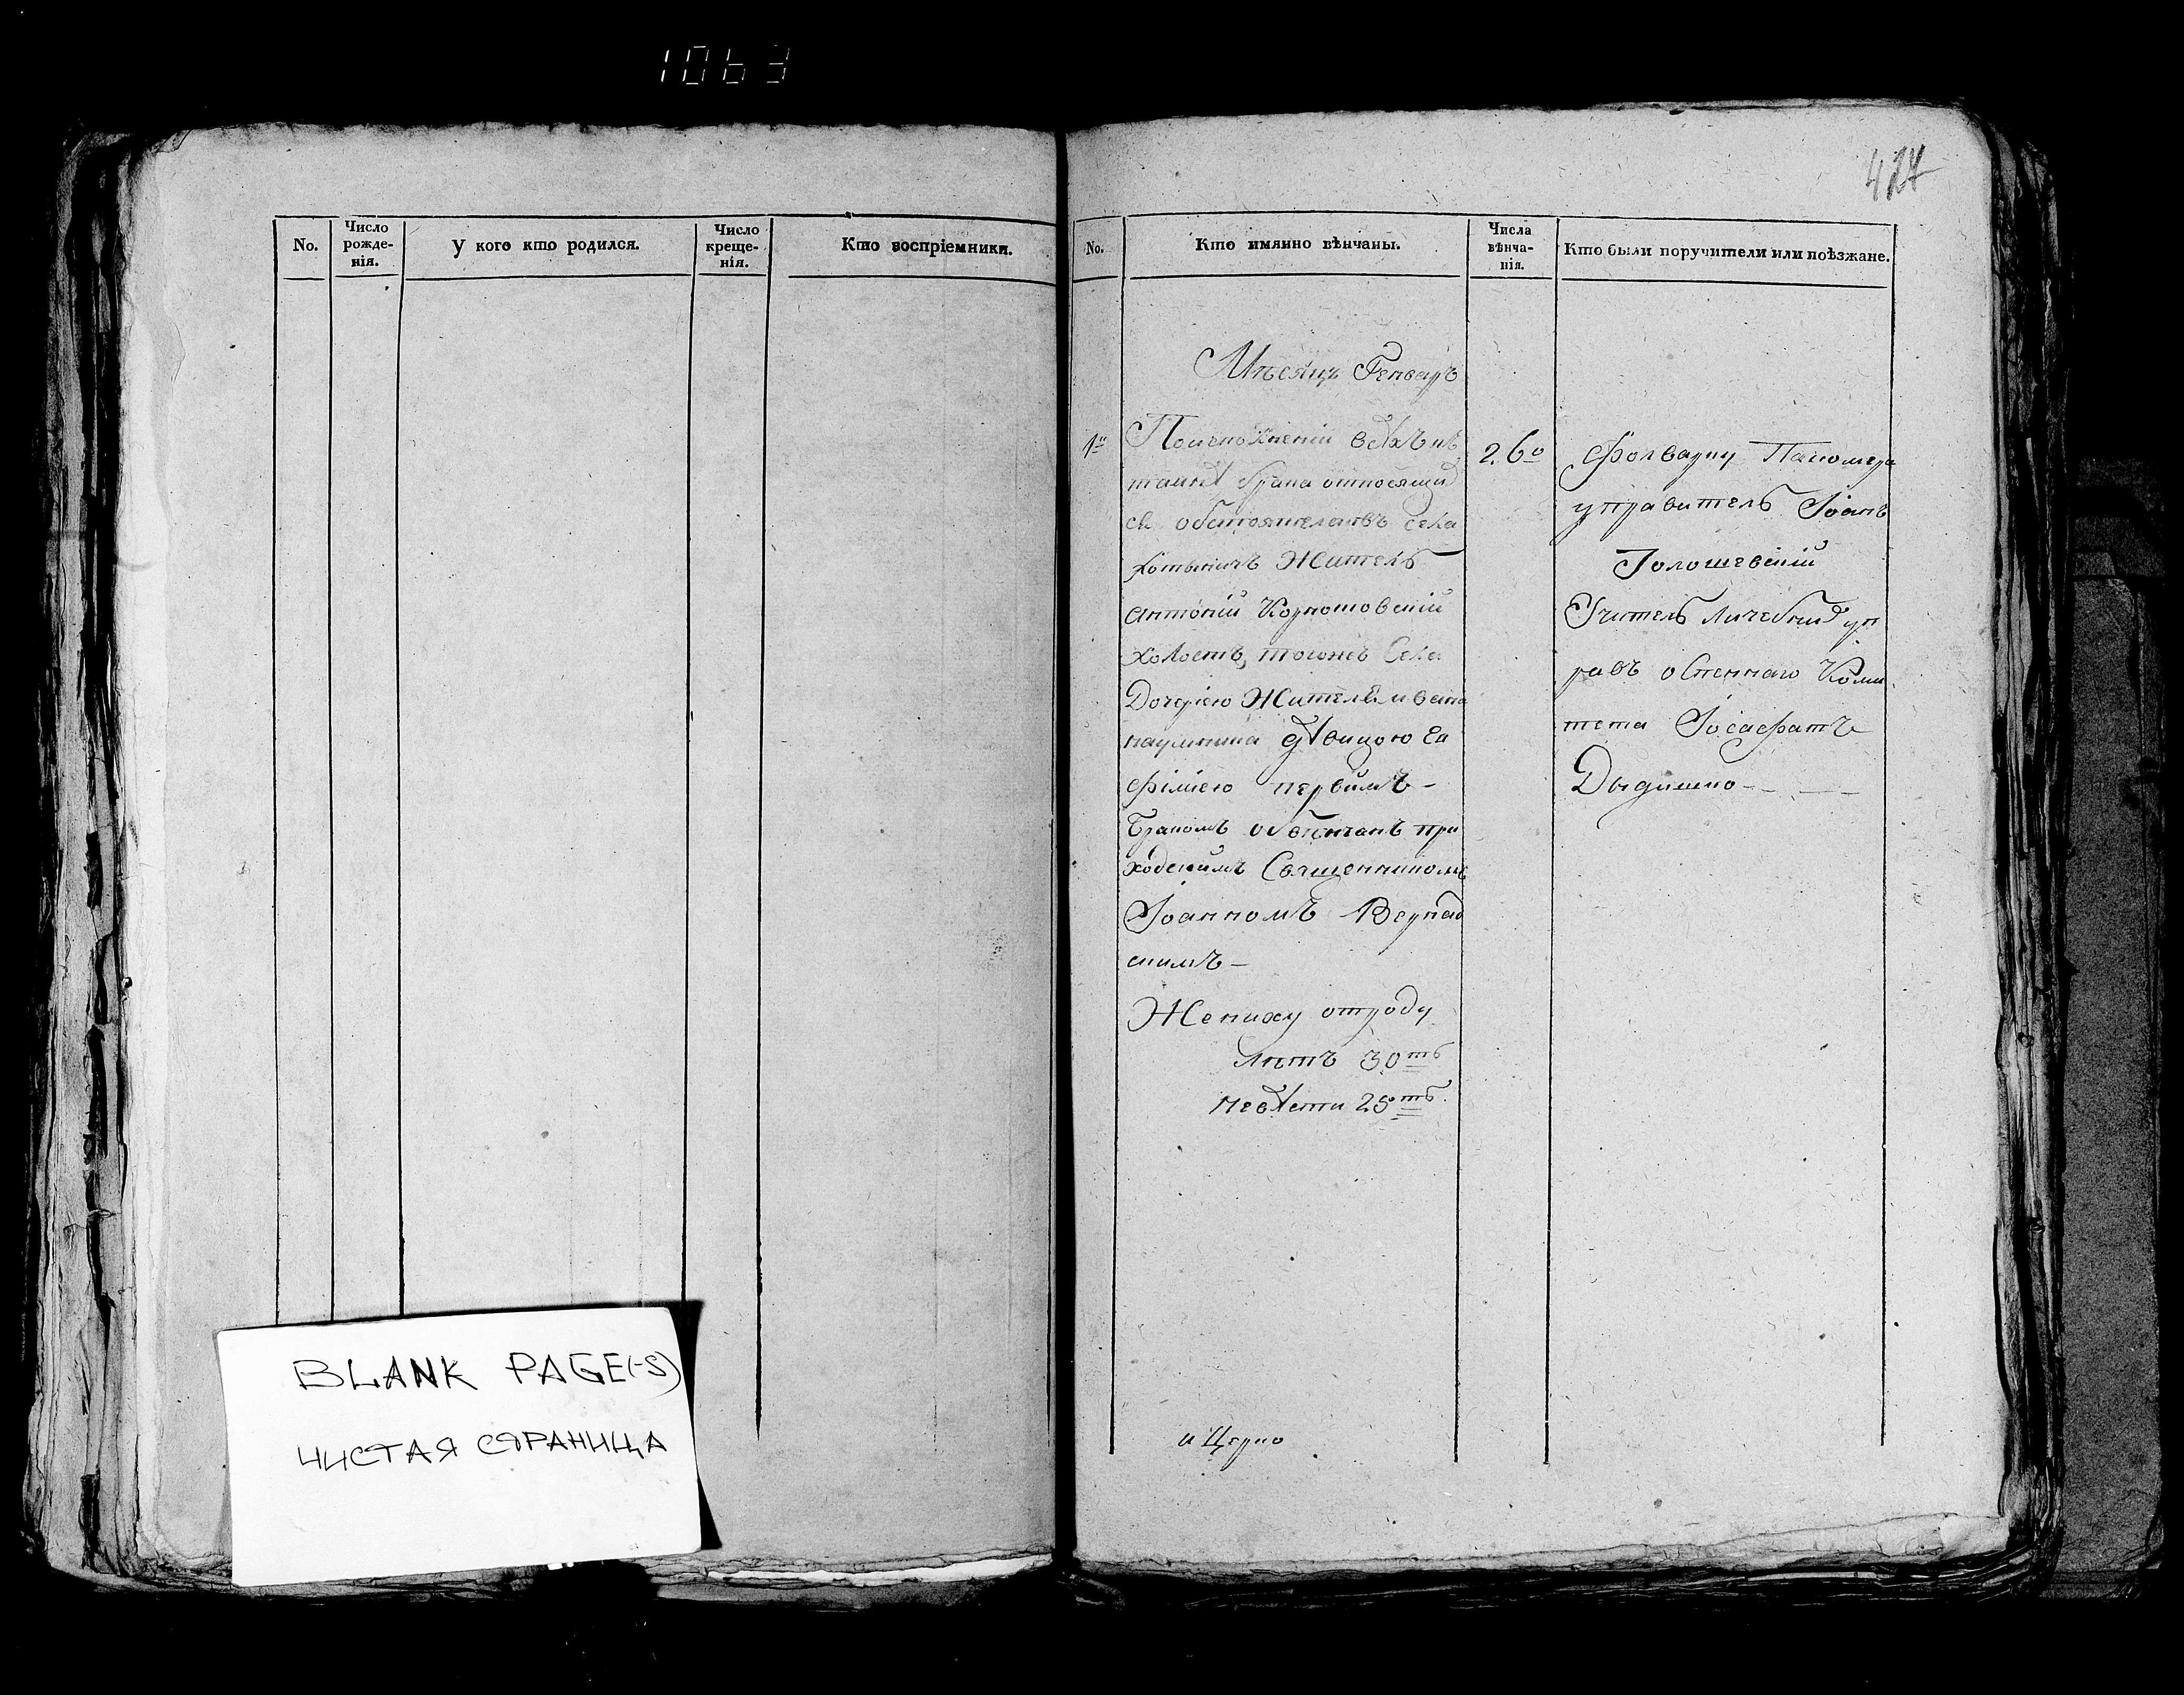 1063
424
No.
Число рожде- нія.
У кого кто родился.
Число креще- нія.
Кто воспріемники.
No.
Кто имянно вѣнчаны.
Числа вѣнча- нія.
Кто были поручители или поѣзжане.
Мѣсяцъ Генварь
1й
брака относящих
ся обстоятелствъ села
Житель
Антоній
холостъ, тогоже Села
Дочерію Жителя
дѣвицою Ев
фіміею первимъ –
Бракомъ обвѣнчанъ при
ходскимъ Священникомъ
Іоанномъ Вернад
скимъ –
Жениху отроду
лѣтъ 30ть
невѣсти 25ть
и Церко
26о
Фолварку
управитель Іоанъ
Голошевскій
Учитель
Коми
тета Іосафатъ
Дыдишко
BLANK PAGE(-S)
ЧИСТАЯ СТРАНИЦА